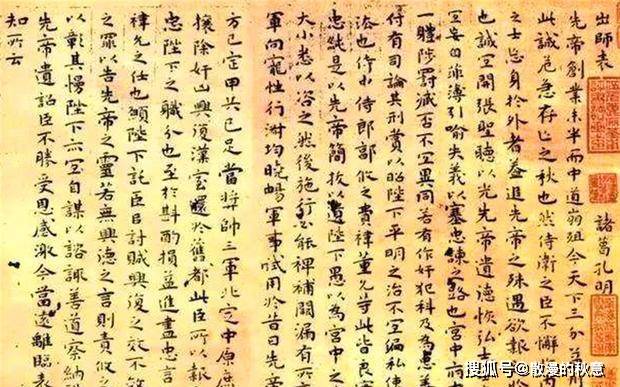 出師表
諸葛孔明
先帝創業未半而中道崩殂今天下三分益
此誠危急存亡之秋也然侍衛之臣不懈
之士忘身於外者蓋追先帝之殊遇欲報
也誠宜開張聖聽以光先帝遺德恢弘士
宜妄自菲薄引喻失義以塞忠諫之路也宮中
一體陟罰臧否不宜異同若有作奸犯科及為忠善
付有司論其刑賞以昭陛下平明之治不宜偏私使
法也侍中侍郎郭攸之費禕董允等此皆良實
忠純是以先帝簡拔遺陛下愚以為宮中之
大小悉以咨之然後施行必能裨補闕漏有所
軍向寵性行淑均曉暢軍事試用於昔日先帝
方已定甲兵已足當獎帥三軍北定中原庶
攘除奸凶興復漢室還於舊都此臣所以報
忠陛下之職分也至於斟酌損益進盡忠言
禕允之任也願陛下託臣討賊興復之效不
之罪以告先帝之靈若無興德之言則責攸之
以彰其慢陛下亦宜自謀以諮諏善道察納
先帝遺詔臣不勝受恩感激今當遠離臨表
知所云
搜狐号@散漫的秋意